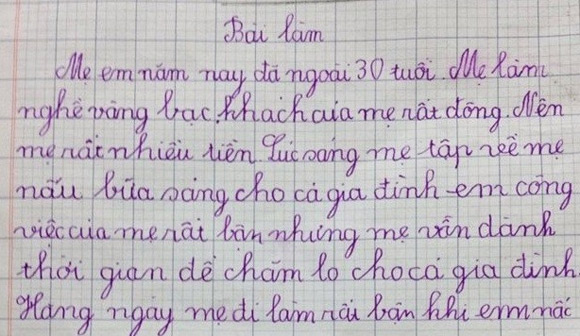 Bài làm
Mẹ em năm nay đã ngoài 30 tuổi. Mẹ làm
nghề vàng bạc. Khách của mẹ rất đông. Nên
mẹ rất nhiều tiền. Lúc sáng mẹ tập về mẹ
nấu bữa sáng cho cả gia đình em công
việc của mẹ rất bận nhưng mẹ vẫn dành
thời gian để chăm lo cho cả gia đình.
Hàng ngày mẹ đi làm rất bận khi em nấc